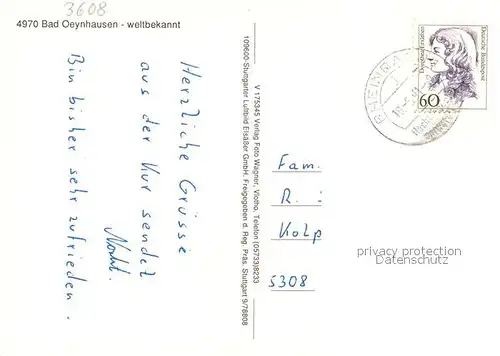 3608
4970 Bad Oeynhausen - weltbekannt
Herzliche Grüsse
aus der Kur sendet
Bin bisher sehr zufrieden.
V 175345 Verlag Foto Wagner, Vlotho, Telefon (05733)8233
109600 Stuttgarter Luftbild Elsäßer GmbH. Freigegeben d. Reg. Präs. Stuttgart 9/78808
Deutsche Bundespost
60
RHEINBA
Fam.
R. :
Kolp
5308
privacy protection
Datenschutz